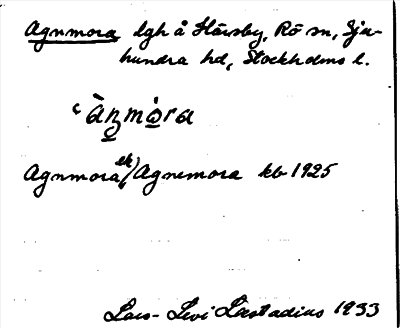 Agnmora lgh å Härsby, Rö sn, Sju-
hundra hd, Stockholms l.
Agnmora /Agnemora kb 1925
Lars-Levi Læstadius 1933